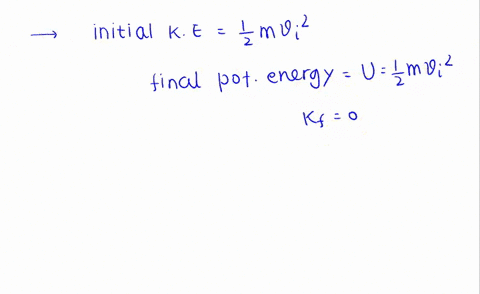 → initial K.E = 1/2 m v_i^2
final pot. energy = U = 1/2 m v_i^2
K_f = 0